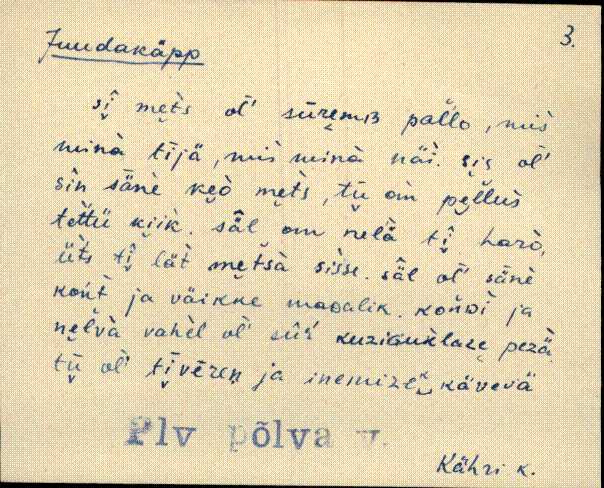 3.
Juudakäpp
sî̬ mets ol' sūremB pal̆lo, mis
minà tījä, mis minà näi. sìs ol'
sîn sänè keò mets, tū om pelluš
tettü kiik. säl om nelä tî̬ harò,
üts tî̬ lät metsà sisse. säl ol' sänè
kont ja väikke maɢalik. końDi ja
nelvà vahel ol' sûr pezä.
tū ol' tī̬vēren ja inemize kävevä
Plv põlva v.
Kähri k.